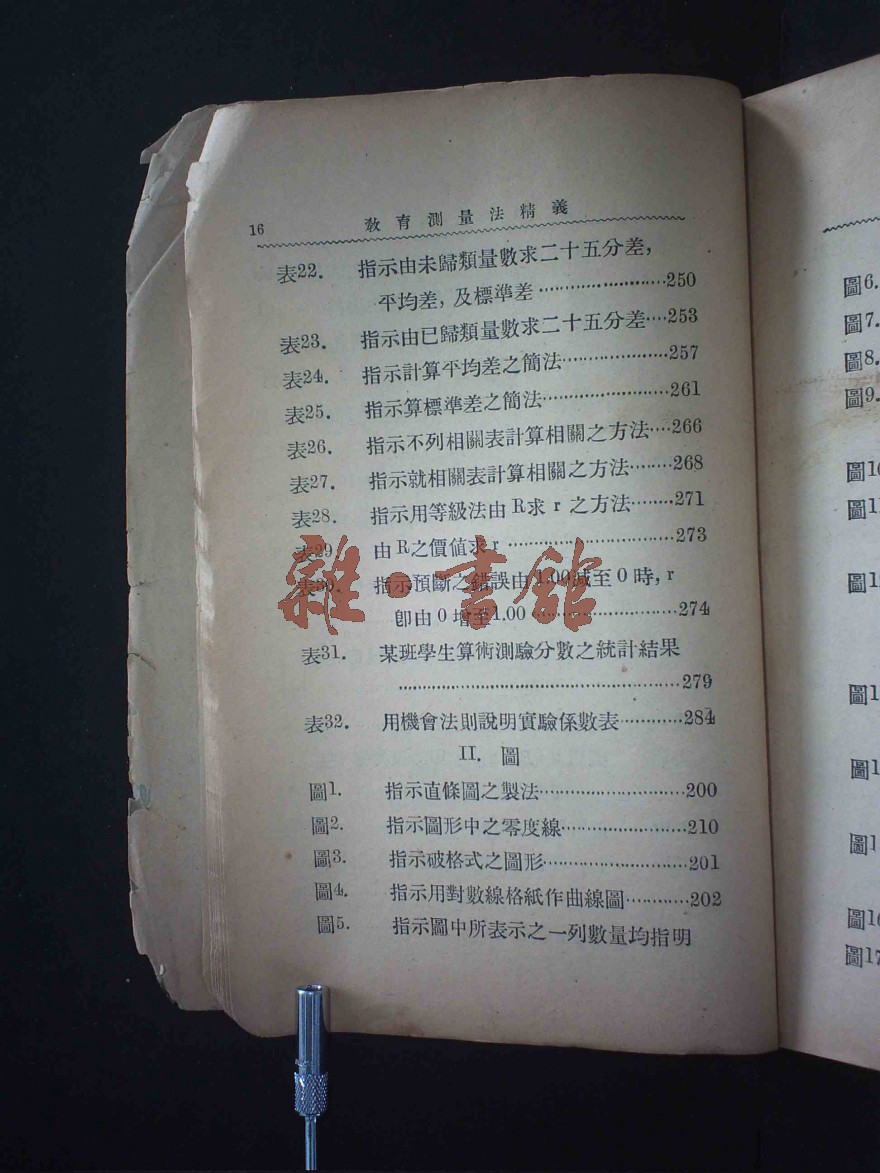 16 教育測量法精義
表22. 指示由未歸類量數求二十五分差,
平均差, 及標準差……………………250
表23. 指示由已歸類量數求二十五分差……253
表24. 指示計算平均差之簡法…………………257
表25. 指示算標準差之簡法……………………261
表26. 指示不列相關表計算相關之方法……266
表27. 指示就相關表計算相關之方法………268
表28. 指示用等級法由R求 r 之方法………271
表29. 由R之價值求r……………………………273
表30. 指示預斷之錯誤由1.00減至0時, r
卽由0增至1.00……………………………274
表31. 某班學生算術測驗分數之統計結果
………………………………………………279
表32. 用機會法則說明實驗係數表…………284
II. 圖
圖1. 指示直條圖之製法………………………200
圖2. 指示圖形中之零度線……………………210
圖3. 指示破格式之圖形………………………201
圖4. 指示用對數線格紙作曲線圖…………202
圖5. 指示圖中所表示之一列數量均指明
雜·書館
圖6.
圖7.
圖8.
圖9.